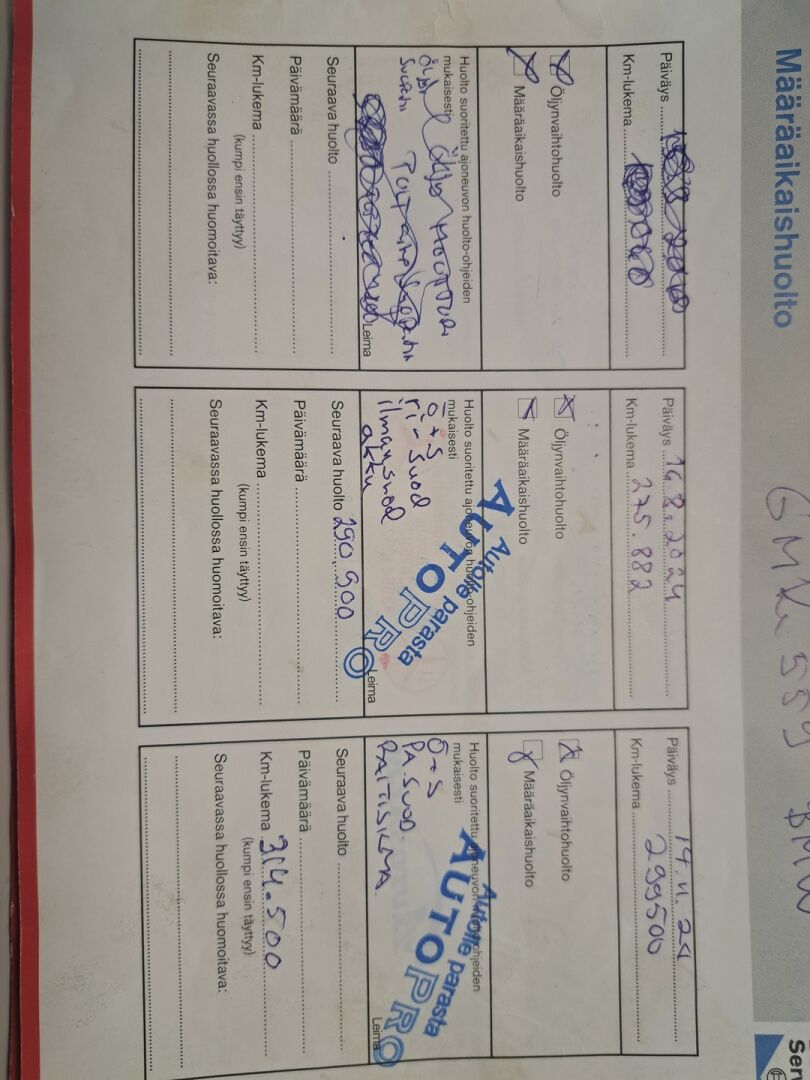 Määräaikaishuolto
GMK-559 BMW
Ser
Päiväys
Km-lukema
Öljynvaihtohuolto
Määräaikaishuolto
Huolto suoritettu ajoneuvon huolto-ohjeiden
mukaisesti
Leima
Seuraava huolto
Päivämäärä
Km-lukema
(kumpi ensin täyttyy)
Seuraavassa huollossa huomoitava:
Päiväys 16.8.2024
Km-lukema 275.882
Öljynvaihtohuolto
Määräaikaishuolto
Huolto suoritettu ajoneuvon huolto-ohjeiden
mukaisesti
Ö+S
ri-suod
ilmansuod
akku
Autolle parasta
AUTOPRO
Leima
Seuraava huolto 290.900
Päivämäärä
Km-lukema
(kumpi ensin täyttyy)
Seuraavassa huollossa huomoitava:
Päiväys 14.11.24
Km-lukema 299500
Öljynvaihtohuolto
Määräaikaishuolto
Huolto suoritettu ajoneuvon huolto-ohjeiden
mukaisesti
Ö+S
PA.SUOD.
RAITISILMA.
Autolle parasta
AUTOPRO
Leima
Seuraava huolto
Päivämäärä
Km-lukema 314.500
(kumpi ensin täyttyy)
Seuraavassa huollossa huomoitava: